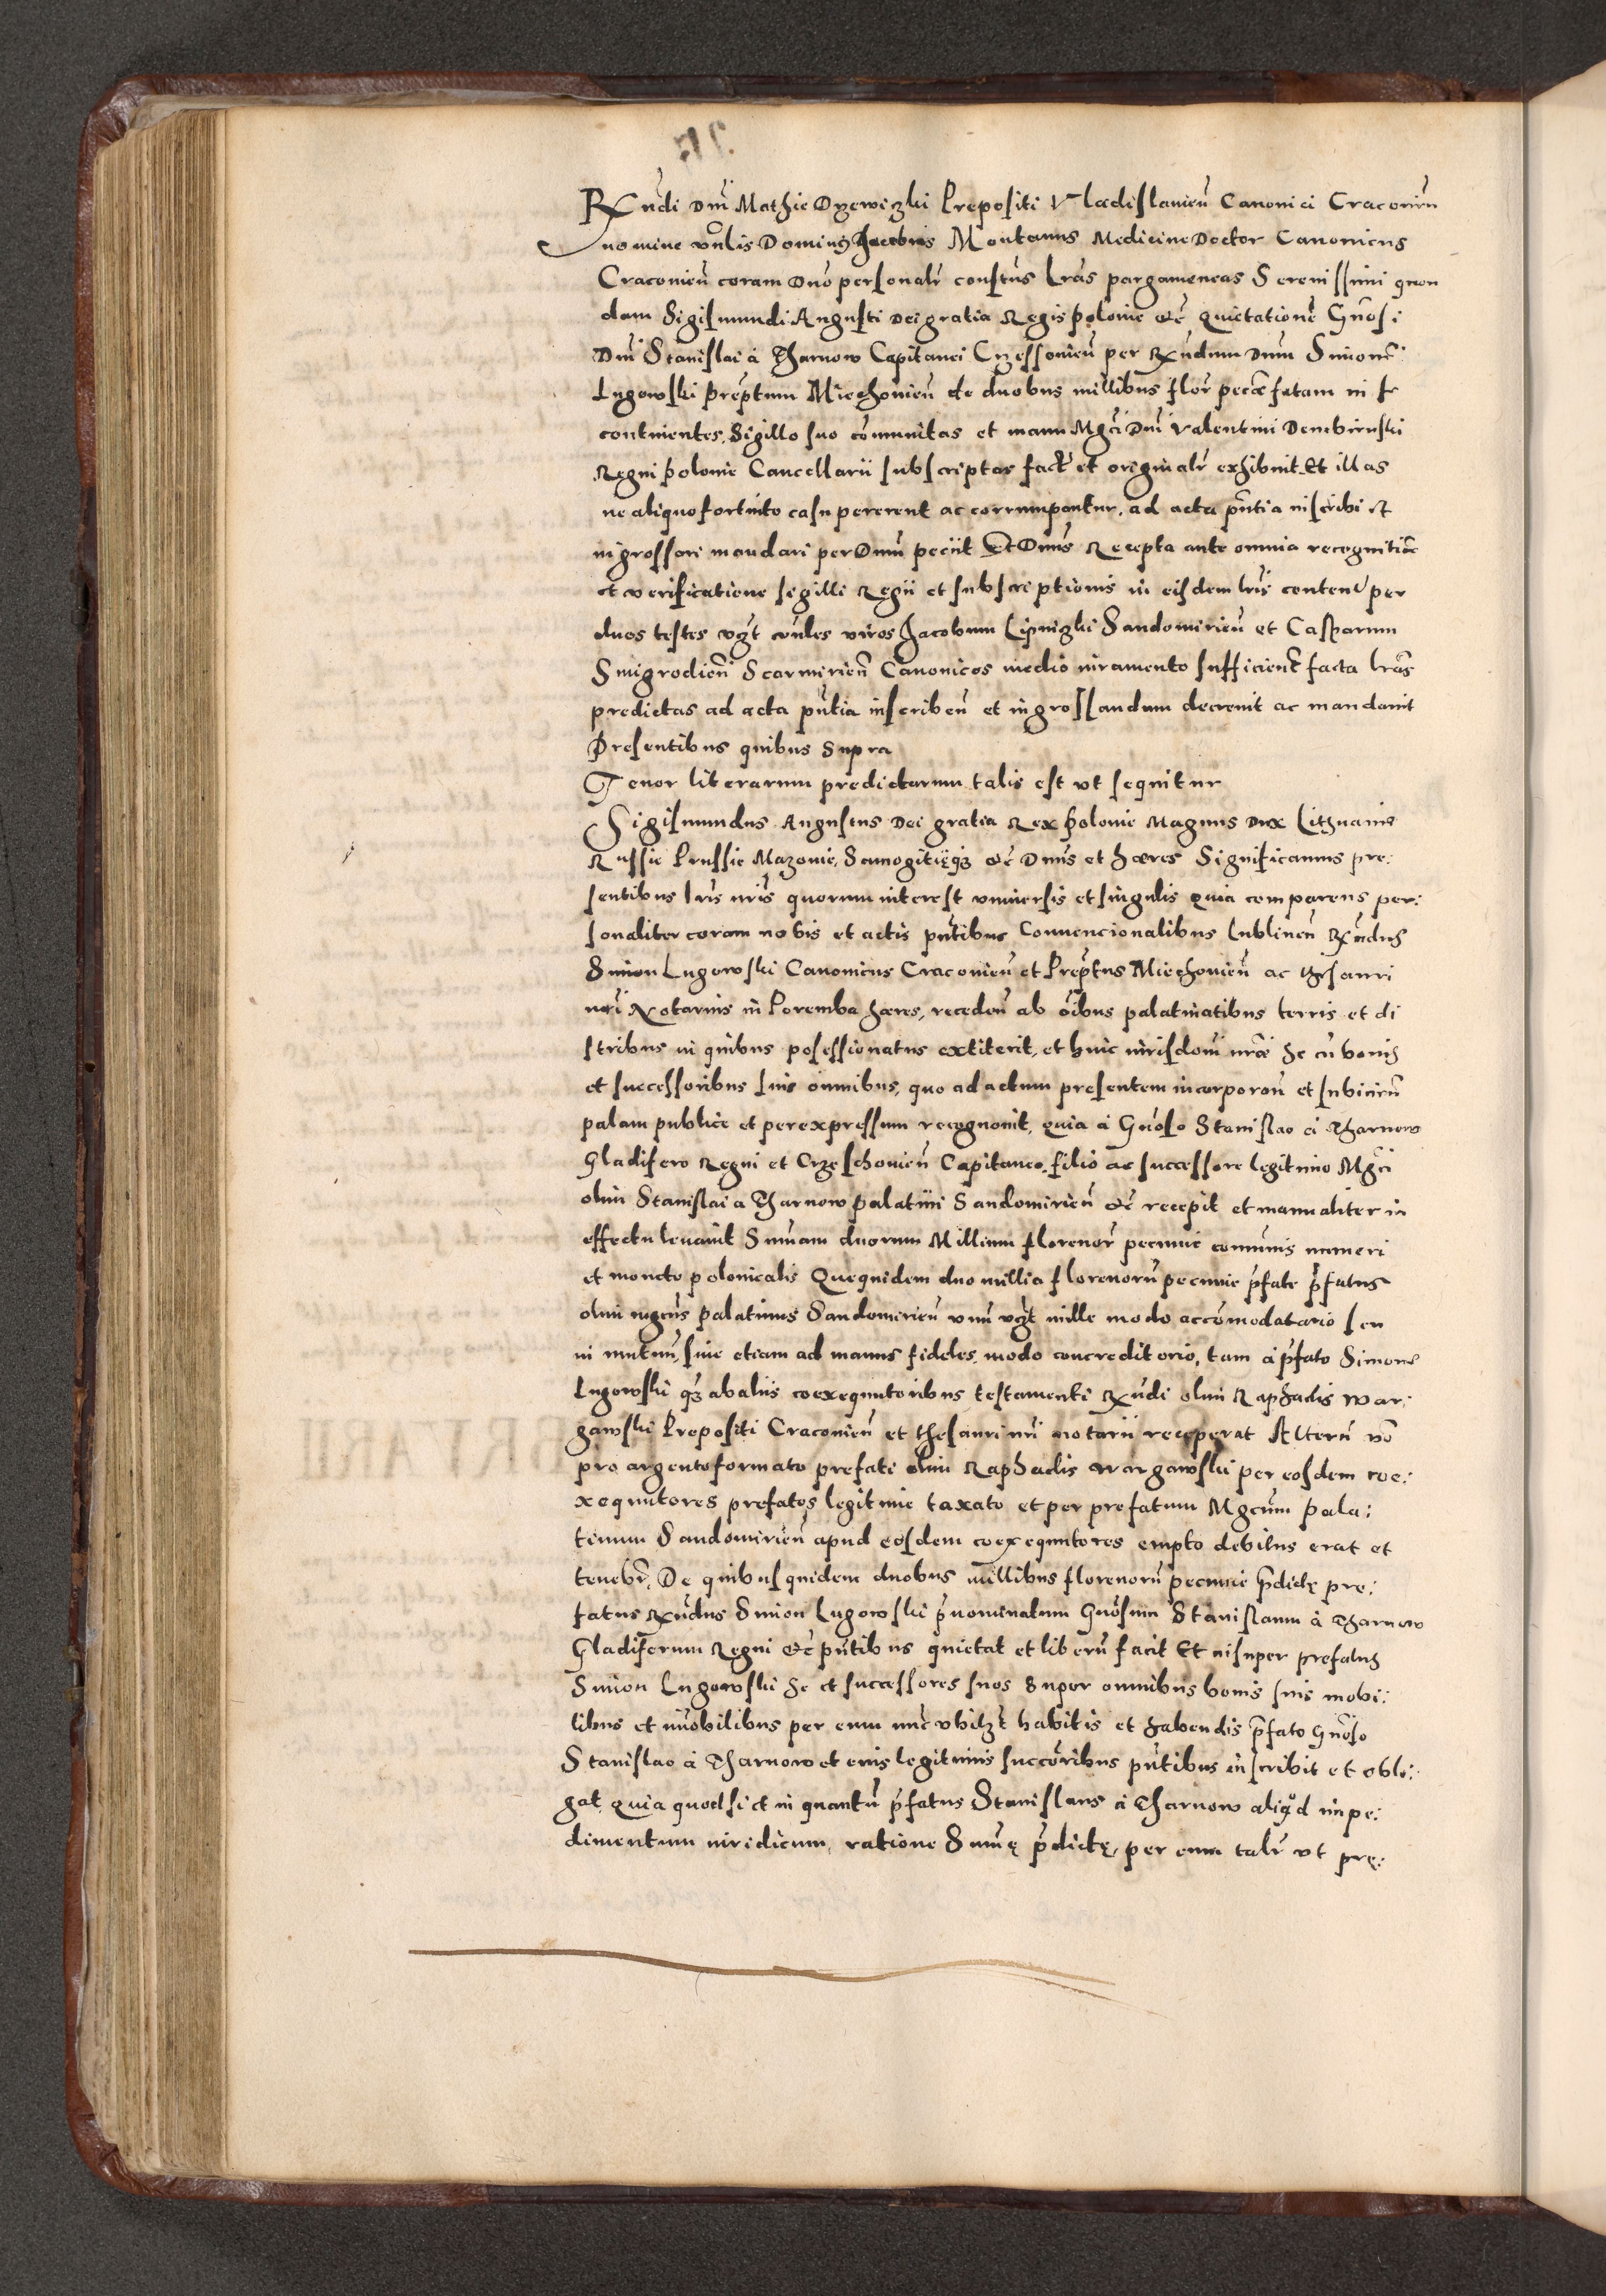 Rñdi Dnĩ Mathie Dzewiczki Prepositi Vladislavieñ Canonici Cracovieñ
nomine vñlis Dominus Jacobus Montanus Medicine Doctor Canonicus
Cracovieñ coram Dño personalr̃ constũs lr̃as pargameneas Serenissimi quon
dam Sigismundi Augusti Dei gratia Regis Polonie etc̃ Quietationẽ Gñosi
Dnĩ Stanislai à Tharnow Capitanei Crzessovieñ per Rx̃ndum Dnum Simonẽ
Lugowski Prep̃tum Miechovieñ de duobus millibus flor̃ pecæ fatam in se
continentes, Sigillo suo cõmunitas et manu Mg̃ci Dnĩ Valentini Dembinski
Regni Polonie Cancellarii subscriptas fact̃ et originalr̃ exhibuit, Et illas
ne aliquo fortuito casu pererent ac corrumpantur, ad acta pñtia inscribi et
ingrossari mandari per Dnũm peciit Et Dnũs Recepta ante omnia recognitiõe
et verificatione segilli Regii et subscriptionis in eisdem lr̃is content̃ per
duos testes vcz̃t vñles viros Jacobum Lipniczki Sandomirieñ et Casparum
Smigrodieñ Scarmirieñ Canonicos medio iuramento sufficient̃ facta lr̃as
predictas ad acta pñtia inscribeñ et ingrossandum decrevit ac mandavit
Presentibus quibus supra
Tenor literarum predictarum talis est ut sequitur
Sigismundus Augustus Dei gratia Rex Polonie Magnus Dux Lithuanie
Russie Prussie Mazovie, Samogitięqz etc̃ Dnũs et hæres Significamus pre:
sentibus lr̃is nr̃is quorum interest universis et singulis Quia comparens per:
sonaliter coram nobis et actis pñtibus Convencionalibus Lublineñ Rx̃ndus
Simon Lugowski Canonicus Cracovieñ et Prep̃tus Miechovieñ ac thesauri
nr̃i Notarius in Poremba hæres, recedeñ ab oĩbus palatinatibus terris et di
stribus in quibus posessionatus extiterit, et huic iurisdoni nr̃æ se cũ bonis
et successoribus suis omnibus, quo ad actum presentem incorporañ et subiicieñ
palam publice et per expressum recognovit, Quia à Gñoso Stanislao à Tharnow
Gladifero Regni et Crzeschovieñ Capitaneo, filio ac successore legitimo Mg̃ci
olim Stanislai a Tharnow Palatini Sandomirieñ etc̃ recepit et manualiter in
effectu levavit Sumam duorum Millium florenor̃ pecunie comunis numeri
et monete polonicalis Quequidem duo millia florenorũ pecunie p̃fate p̃fatus
olim mgcũs Palatinus Sandomirieñ unũ vcz̃t mille modo accõmodatario seu
in mutuũ, sive etiam ad manus fideles, modo concreditorio, tam à p̃fato Simone
Lugowski qz ab aliis coexequutoribus testamenti Rx̃ndi olim Raphaelis War:
gawski Prepositi Cracovieñ et thesauri nr̃i notarii receperat Alterũ vo᷃
pro argento formato prefati olim Raphaelis Wargawski per eosdem coe:
xequutores prefatos legitime taxato et per prefatum Mgcũm Pala:
tinum Sandomirieñ apud eosdem coexequutores empto debitus erat et
tenebr̃, De quibusquidem duobus millibus florenorũ pecunie p̃dictę pre:
fatus Rx̃ndus Simon Lugowski p̃nominatum Gñosum Stanislaum à Tharnow
Gladiferum Regni etc̃ pñtibus quietat et liberũ facit Et insuper prefatus
Simon Lugowski se et successores suos super omnibus bonis suis mobi:
libus et iṁobilibus per eum nunc ubilz̃t habitis et habendis p̃fato Gñoso
Stanislao à Tharnow et eius legitimis succõribus pñtibus inscribit et obli:
gat, Quia quod si et in quantũ p̃fatus Stanislaus à Tharnow aliqd̃ impe:
dimentum iuridicum, ratione Sumę p̃dictę, per eum talr̃ ut prę: